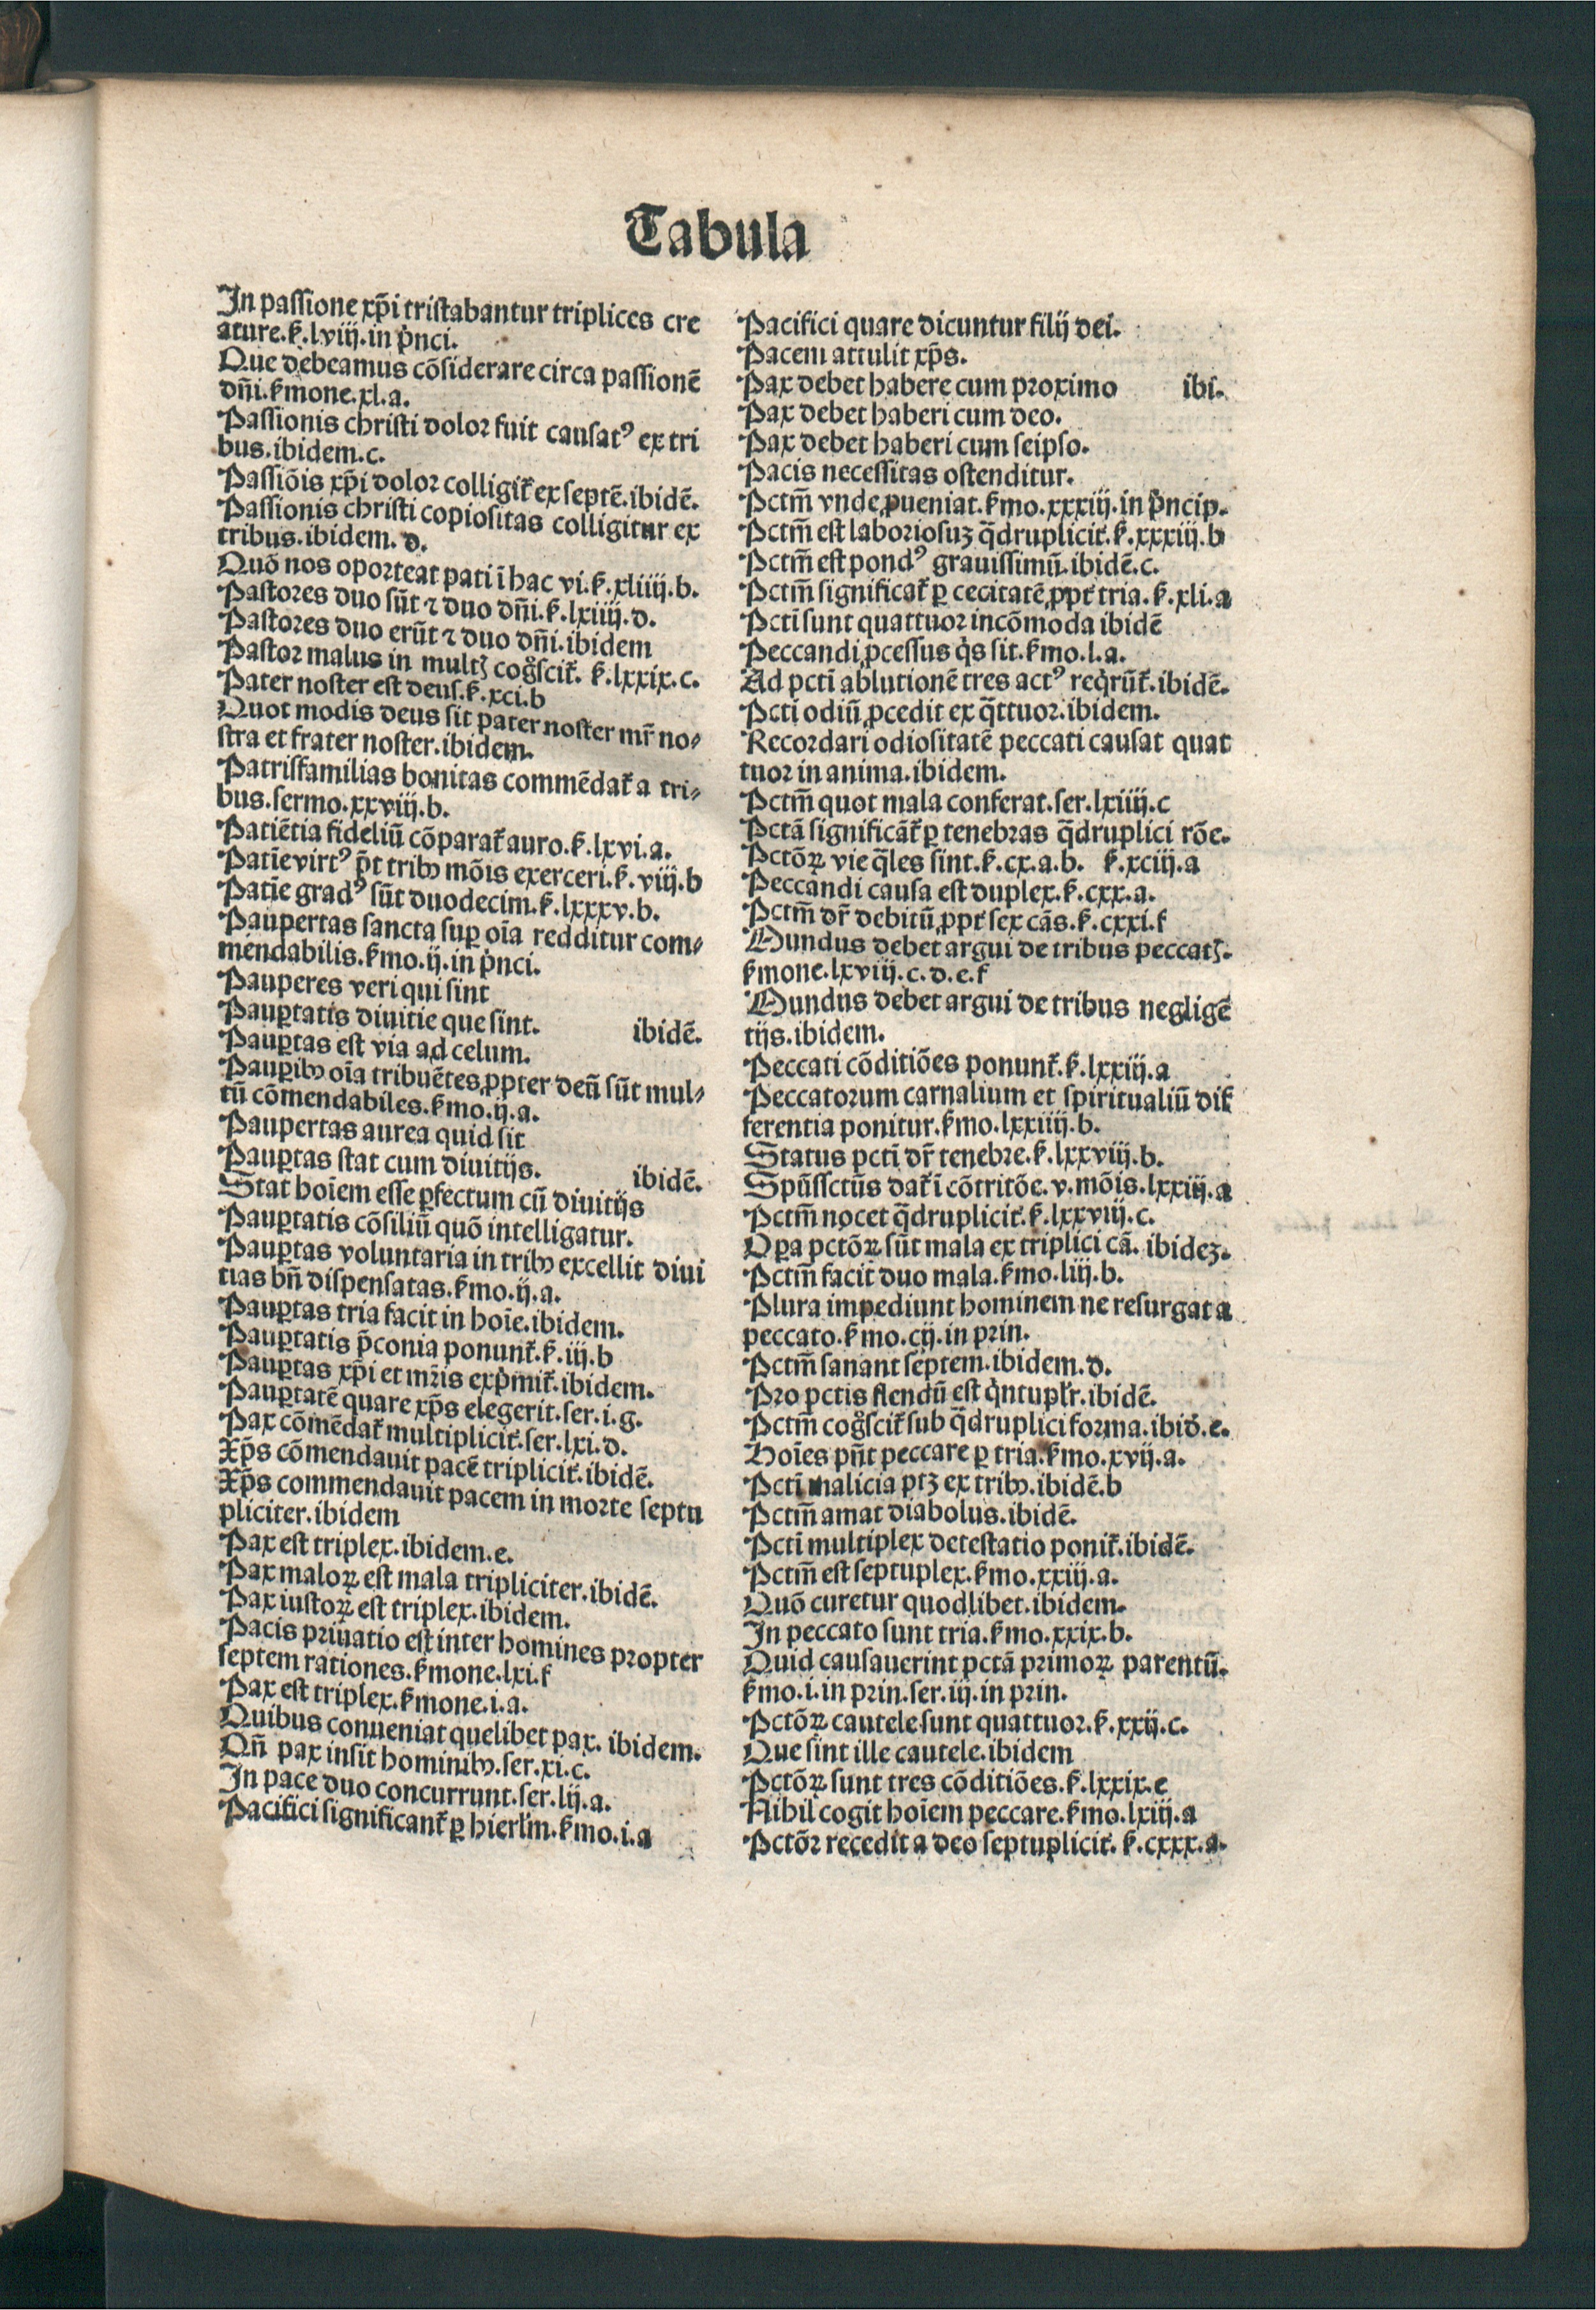 Tabula
In passione xp̄i tristabantur triplices cre
ature.ẜ.lviij.in pͥnci.
Que debeamus cōsiderare circa passionē
dn̄i.ẜmone.xl.a.
Passionis christi dolor fuit causatꝰ ex tri
bus.ibidem.c.
Passiōis xp̄i dolor colligit᷑ ex septē.ibidē.
Passionis christi copiositas colligitur ex
tribus.ibidem.d.
Quō nos oporteat pati ī hac vi.ẜ.xliiij.b.
Pastores duo sūt ⁊ duo dn̄i.ẜ.lxiiij.d.
Pastores duo erūt ⁊ duo dn̄i.ibidem
Pastor malus in multꝭ cogͦscit᷑. ẜ.lxxix.c.
Pater noster est deus.ẜ.xci.b
Quot modis deus sit pater noster mr̄ no⸗
stra et frater noster.ibidem.
Patrisfamilias bonitas commēdat᷑ a tri⸗
bus.sermo.xxviij.b.
Patiētia fideliū cōparat᷑ auro.ẜ.lxvi.a.
Patiēvirtꝰ p̄t tribꝰ mōis exerceri.ẜ.viij.b
Patiē gradꝰ sūt duodecim.ẜ.lxxxv.b.
Paupertas sancta suꝑ oīa redditur com⸗
mendabilis.ẜmo.ij.in pͥnci.
Pauperes veri qui sint
Pauꝑtatis diuitie que sint. ibidē.
Pauꝑtas est via ad celum.
Pauꝑibꝰ oīa tribuētes ꝓpter deū sūt mul⸗
tū cōmendabiles.ẜmo.ij.a.
Paupertas aurea quid sit
Pauꝑtas stat cum diuitijs. ibidē.
Stat hoīem esse ꝑfectum cū diuitijs
Pauꝑtatis cōsiliū quō intelligatur.
Pauꝑtas voluntaria in tribꝰ excellit diui
tias bn̄ dispensatas.ẜmo.ij.a.
Pauꝑtas tria facit in hoīe.ibidem.
Pauꝑtatis p̄conia ponunt᷑.ẜ.iij.b
Pauꝑtas xp̄i et mr̄is expͥmit᷑.ibidem.
Pauꝑtatē quare xp̄s elegerit.ser.i.g.
Pax cōmēdat᷑ multiplicit᷑.ser.lxi.d.
Xp̄s cōmendauit pacē triplicit᷑.ibidē.
Xp̄s commendauit pacem in morte septu
pliciter.ibidem
Pax est triplex.ibidem.e.
Pax maloꝝ est mala tripliciter.ibidē.
Pax iustoꝝ est triplex.ibidem.
Pacis priuatio est inter homines propter
septem rationes.ẜmone.lxi.f
Pax est triplex.ẜmone.i.a.
Quibus conueniat quelibet pax. ibidem.
Qn̄ pax insit hominibꝰ.ser.xi.c.
In pace duo concurrunt.ser.lij.a.
Pacifici significant᷑ ꝑ hierl̄m.ẜmo.i.a
Pacifici quare dicuntur filij dei.
Pacem attulit xp̄s.
Pax debet habere cum proximo ibi.
Pax debet haberi cum deo.
Pax debet haberi cum seipso.
Pacis necessitas ostenditur.
Pctm̄ vnde ꝓueniat.ẜmo.xxxiij.in pͥncip.
Pctm̄ est laboriosuꝫ q̄druplicit᷑.ẜ.xxxiij.b
Pctm̄ est pondꝰ grauissimū.ibidē.c.
Pctm̄ significat᷑ ꝑ cecitatē ꝓpt᷑ tria.ẜ.xli.a
Pcti sunt quattuor incōmoda ibidē
Peccandi ꝓcessus qͥs sit.ẜmo.l.a.
Ad pctī ablutionē tres actꝰ reqͥrūt᷑.ibidē.
Pcti odiū ꝓcedit ex q̄ttuor.ibidem.
Recordari odiositatē peccati causat quat
tuor in anima.ibidem.
Pctm̄ quot mala conferat.ser.lxiiij.c
Pctā significāt᷑ ꝑ tenebras q̄druplici rōe.
Pctōꝝ vie q̄les sint.ẜ.cx.a.b. ẜ.xciij.a
Peccandi causa est duplex.ẜ.cxx.a.
Pctm̄ dr̄ debitū ꝓpt᷑ sex cās.ẜ.cxxi.f
Mundus debet argui de tribus peccatꝭ.
ẜmone.lxviij.c.d.e.f
Mundus debet argui de tribus negligē
tijs.ibidem.
Peccati cōditiōes ponunt᷑.ẜ.lxxiij.a
Peccatorum carnalium et spiritualiū dif
ferentia ponitur.ẜmo.lxxiiij.b.
Status pctī dr̄ tenebre.ẜ.lxxviij.b.
Spūssctūs dat᷑ ī cōtritōe.v.mōis.lxxiij.a
Pctm̄ nocet q̄druplicit᷑.ẜ.lxxviij.c.
Oꝑa pctōꝝ sūt mala ex triplici cā. ibideꝫ.
Pctm̄ facit duo mala.ẜmo.liij.b.
Plura impediunt hominem ne resurgat a
peccato.ẜmo.cij.in prin.
Pctm̄ sanant septem.ibidem.d.
Pro pctis flendū est qͥntupl'r.ibidē.
Pctm̄ cogͦscit᷑ sub q̄druplici forma.ibid̄.e.
Hoīes pn̄t peccare ꝑ tria.ẜmo.xvij.a.
Pctī malicia ptꝫ ex tribꝰ.ibidē.b
Pctm̄ amat diabolus.ibidē.
Pctī multiplex detestatio ponit᷑.ibidē.
Pctm̄ est septuplex.ẜmo.xxiij.a.
Quō curetur quodlibet.ibidem.
In peccato sunt tria.ẜmo.xxix.b.
Quid causauerint pctā primoꝝ parentū.
ẜmo.i.in prin.ser.iij.in prin.
Pctōꝝ cautele sunt quattuor.ẜ.xxij.c.
Que sint ille cautele.ibidem
Pctōꝝ sunt tres cōditiōes.ẜ.lxxix.e
Nihil cogit hoīem peccare.ẜmo.lxiij.a
Pctōr recedit a deo septuplicit᷑. ẜ.cxxx.a.